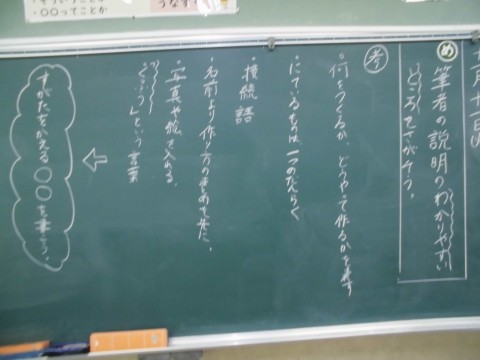 ・〇〇ってことか
うなず
十一日
め 筆者の説明のわかりやすい
ところをさがそう。
考
・何をつくるか、どうやって作るかを書く
・にているものは、一つのだんらく
・接続語
・名前より作り方の
・写真や絵を入れる。
という言葉
すがたをかえる〇〇を書こう。